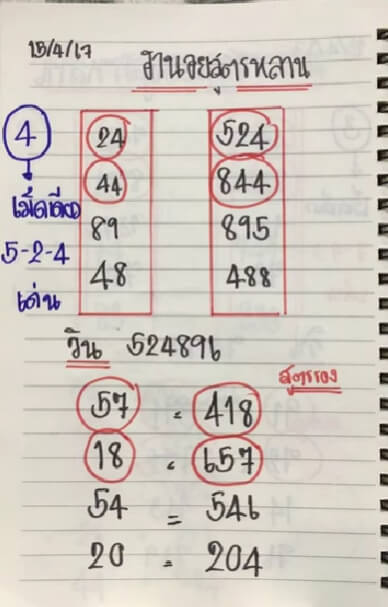 15/4/17
ฮานอยสูตรหลาน
4
24 524
44 844
เม็ดเดียว
89 895
5-2-4
48 488
เด่น
วิน 524896
สูตรรอง
57 = 418
18 = 657
54 = 546
20 = 204